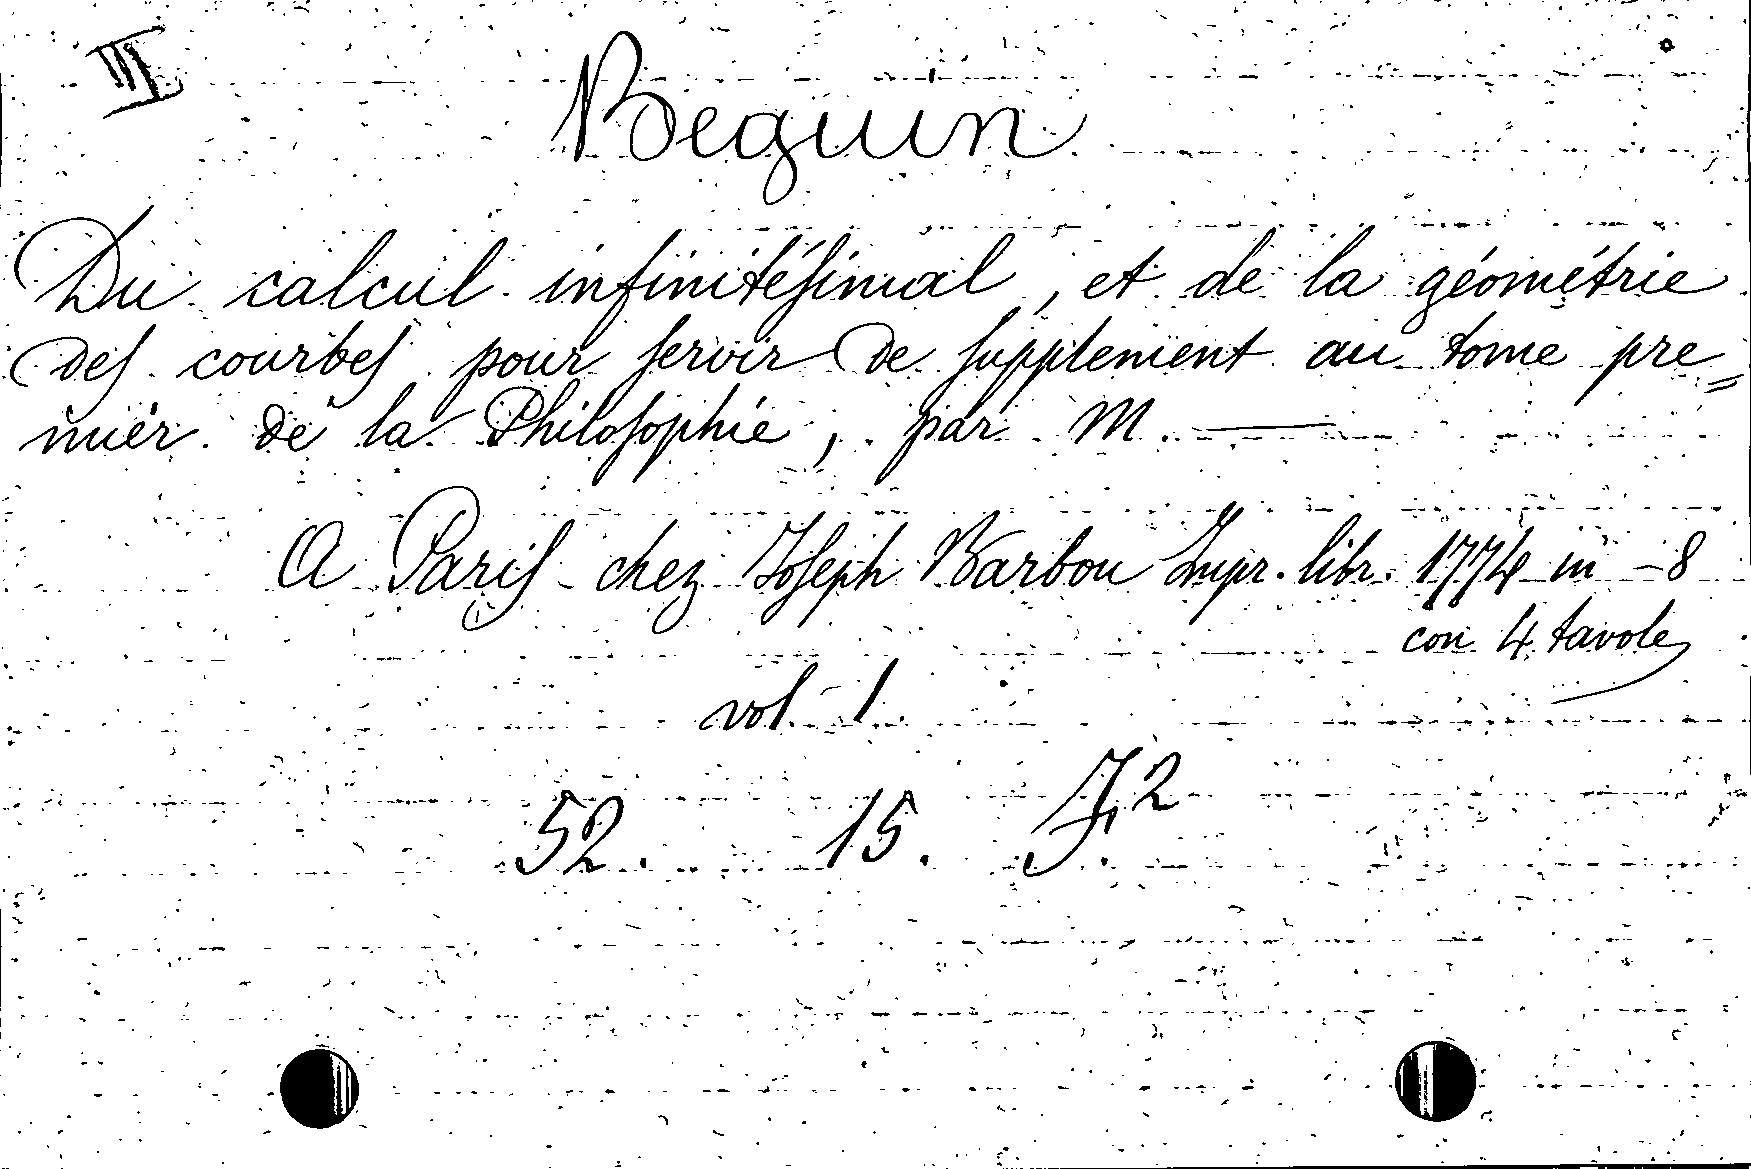 III
Beguin
Du calcul infinitésimal, et de la géométrie
des courbes pour servir de supplement au tome pre=
mier de la Philosophie, par M. ——
A Paris chez Joseph Barbou Impr. libr. 1774 in -8
con 4 tavole
vol. 1.
52. 15. F.2